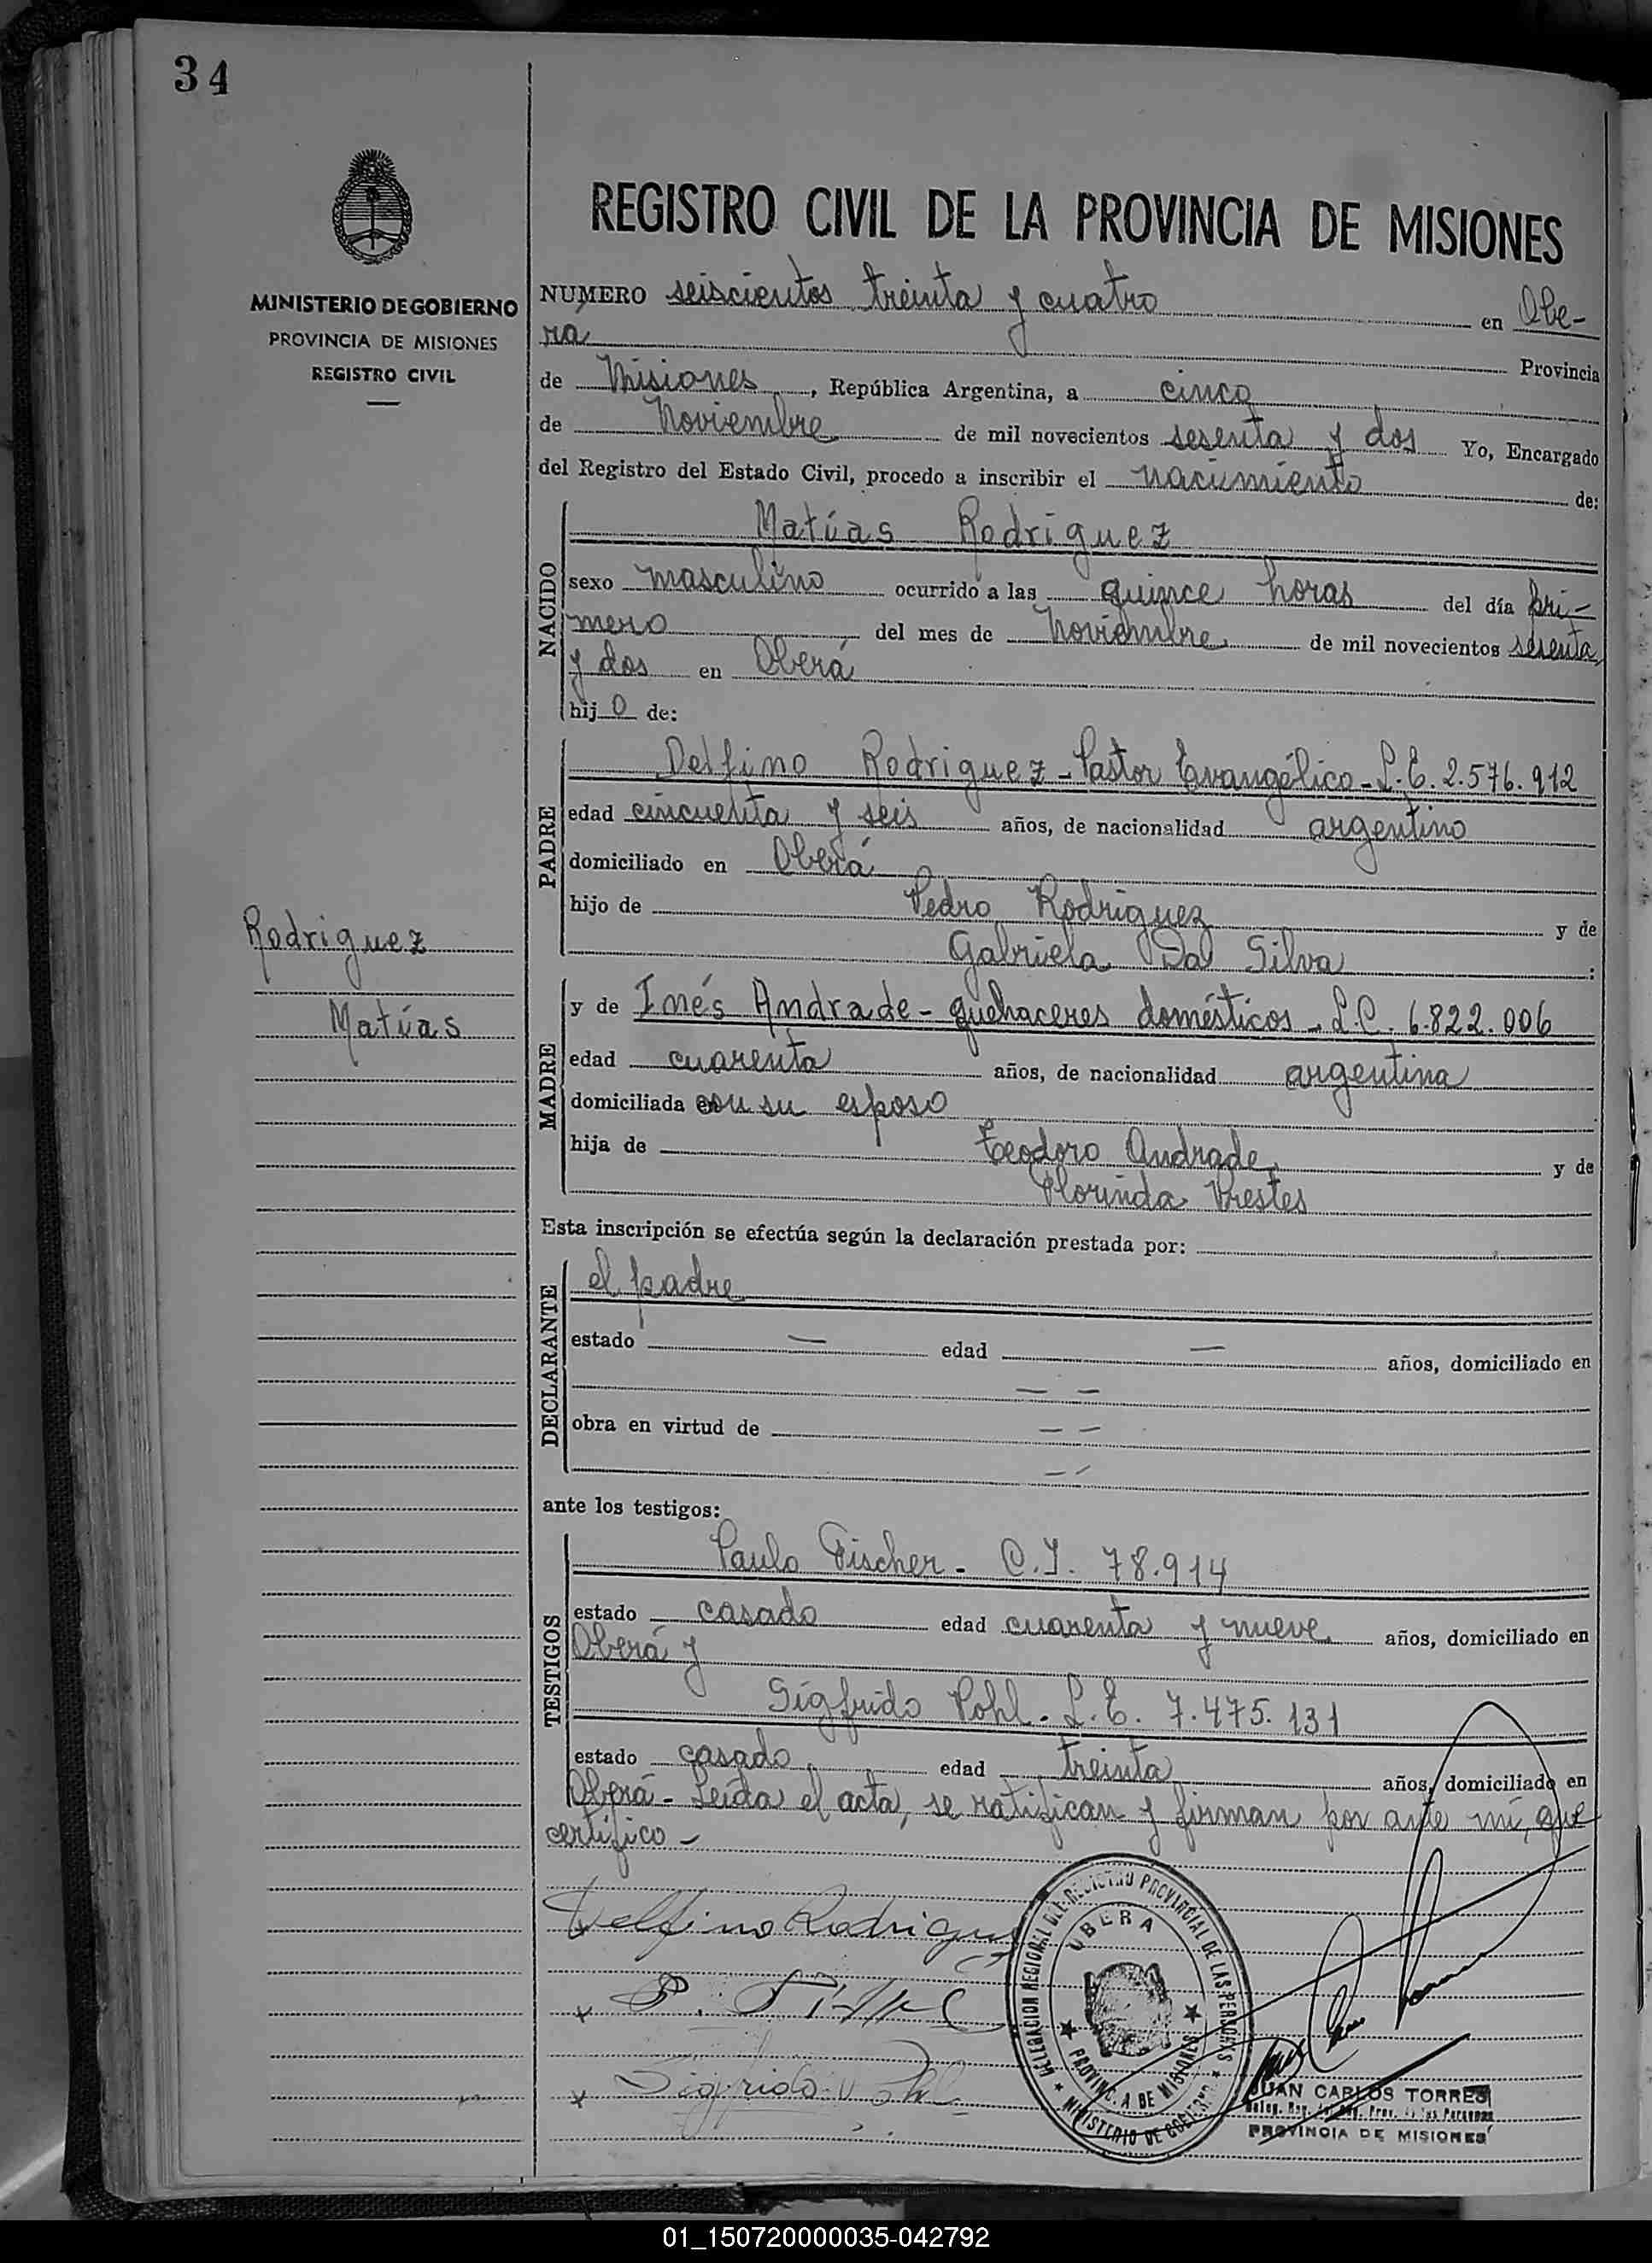 34
MINISTERIO DE GOBIERNO
PROVINCIA DE MISIONES
REGISTRO CIVIL
REGISTRO CIVIL DE LA PROVINCIA DE MISIONES
NUMERO seiscientos treinta y cuatro en Obe-
ra Provincia
de Misiones, República Argentina, a cinco
de Noviembre de mil novecientos sesenta y dos Yo, Encargado
del Registro del Estado Civil, procedo a inscribir el nacimiento de:
NACIDO
Matías Rodriguez
sexo masculino ocurrido a las quince horas del día pri-
mero del mes de Noviembre de mil novecientos sesenta
y dos en Oberá
hijo de:
PADRE
Delfino Rodriguez - Pastor Evangélico - L.E. 2.576.912
edad cincuenta y seis años, de nacionalidad argentino
domiciliado en Oberá
hijo de Pedro Rodriguez y de
Gabriela Da Silva :
Rodriguez
Matías
MADRE
y de Inés Andrade - quehaceres domésticos - L.C. 6.822.006
edad cuarenta años, de nacionalidad argentina
domiciliada con su esposo
hija de Teodoro Andrade y de
Florinda Prestes
Esta inscripción se efectúa según la declaración prestada por:
DECLARANTE
el padre
estado — edad — años, domiciliado en
— —
obra en virtud de — —
— —
ante los testigos:
TESTIGOS
Paulo Fischer - C.I. 78.914
estado casado edad cuarenta y nueve años, domiciliado en
Oberá y
Sigfrido Pohl - L.E. 7.475.131
estado casado edad treinta años, domiciliado en
Oberá - Leída el acta, se ratifican y firman por ante mí, que
certifico -
Delfino Rodriguez
DELEGACION REGIONAL DEL REGISTRO PROVINCIAL DE LAS PERSONAS
OBERA
PROVINCIA DE MISIONES
MINISTERIO DE GOBIERNO
Sigfrido Pohl
JUAN CARLOS TORRES
PROVINCIA DE MISIONES
01_150720000035-042792